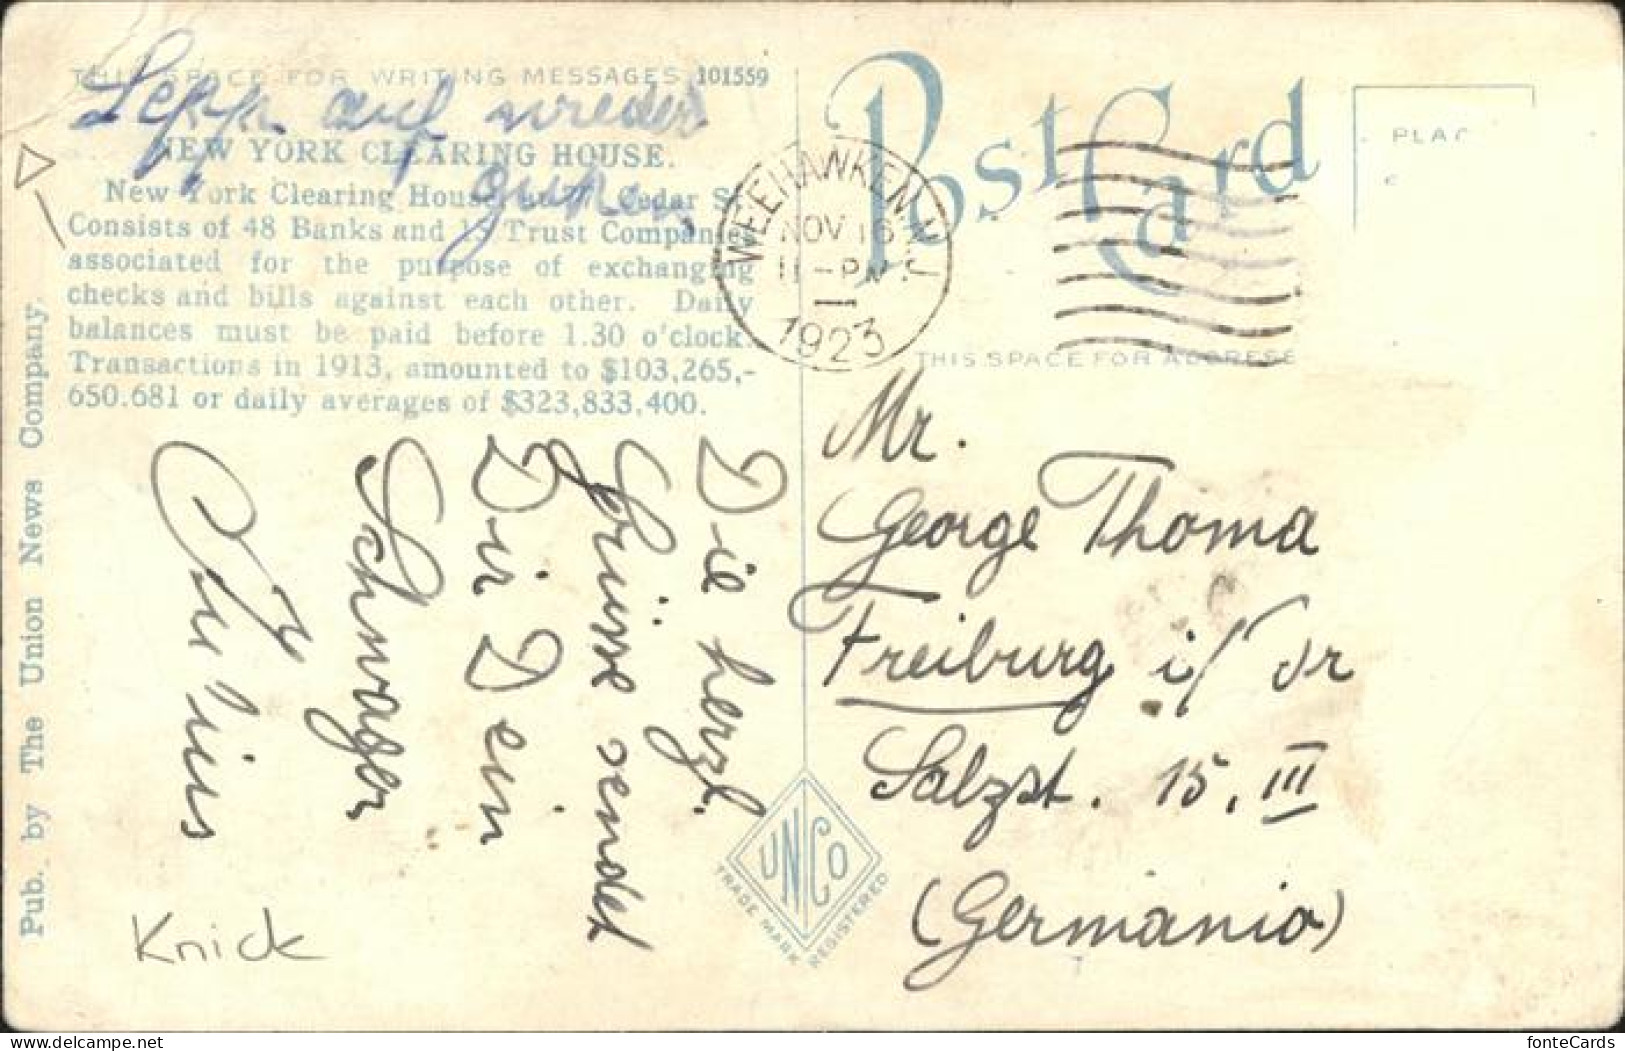 THIS SPACE FOR WRITING MESSAGES 101559
Sepp auf
NEW YORK CLEARING HOUSE.
New York Clearing House, 77 Cedar St.
Consists of 48 Banks and 15 Trust Companies
associated for the purpose of exchanging
checks and bills against each other. Daily
balances must be paid before 1.30 o'clock.
Transactions in 1913, amounted to $103,265,-
650.681 or daily averages of $323,833,400.
Die herzl.
Grüsse sendet
Dir Dein
Schwager
Julius
Knick
Pub. by The Union News Company.
Post Card
WEEHAWKEN N.J.
NOV 16
11-PM
1923
PLAC
THIS SPACE FOR ADDRESS
Mr.
George Thoma
Freiburg i/ Br
Salzst. 15, III
(Germania)
UNCO
TRADE MARK REGISTERED
fonteCards